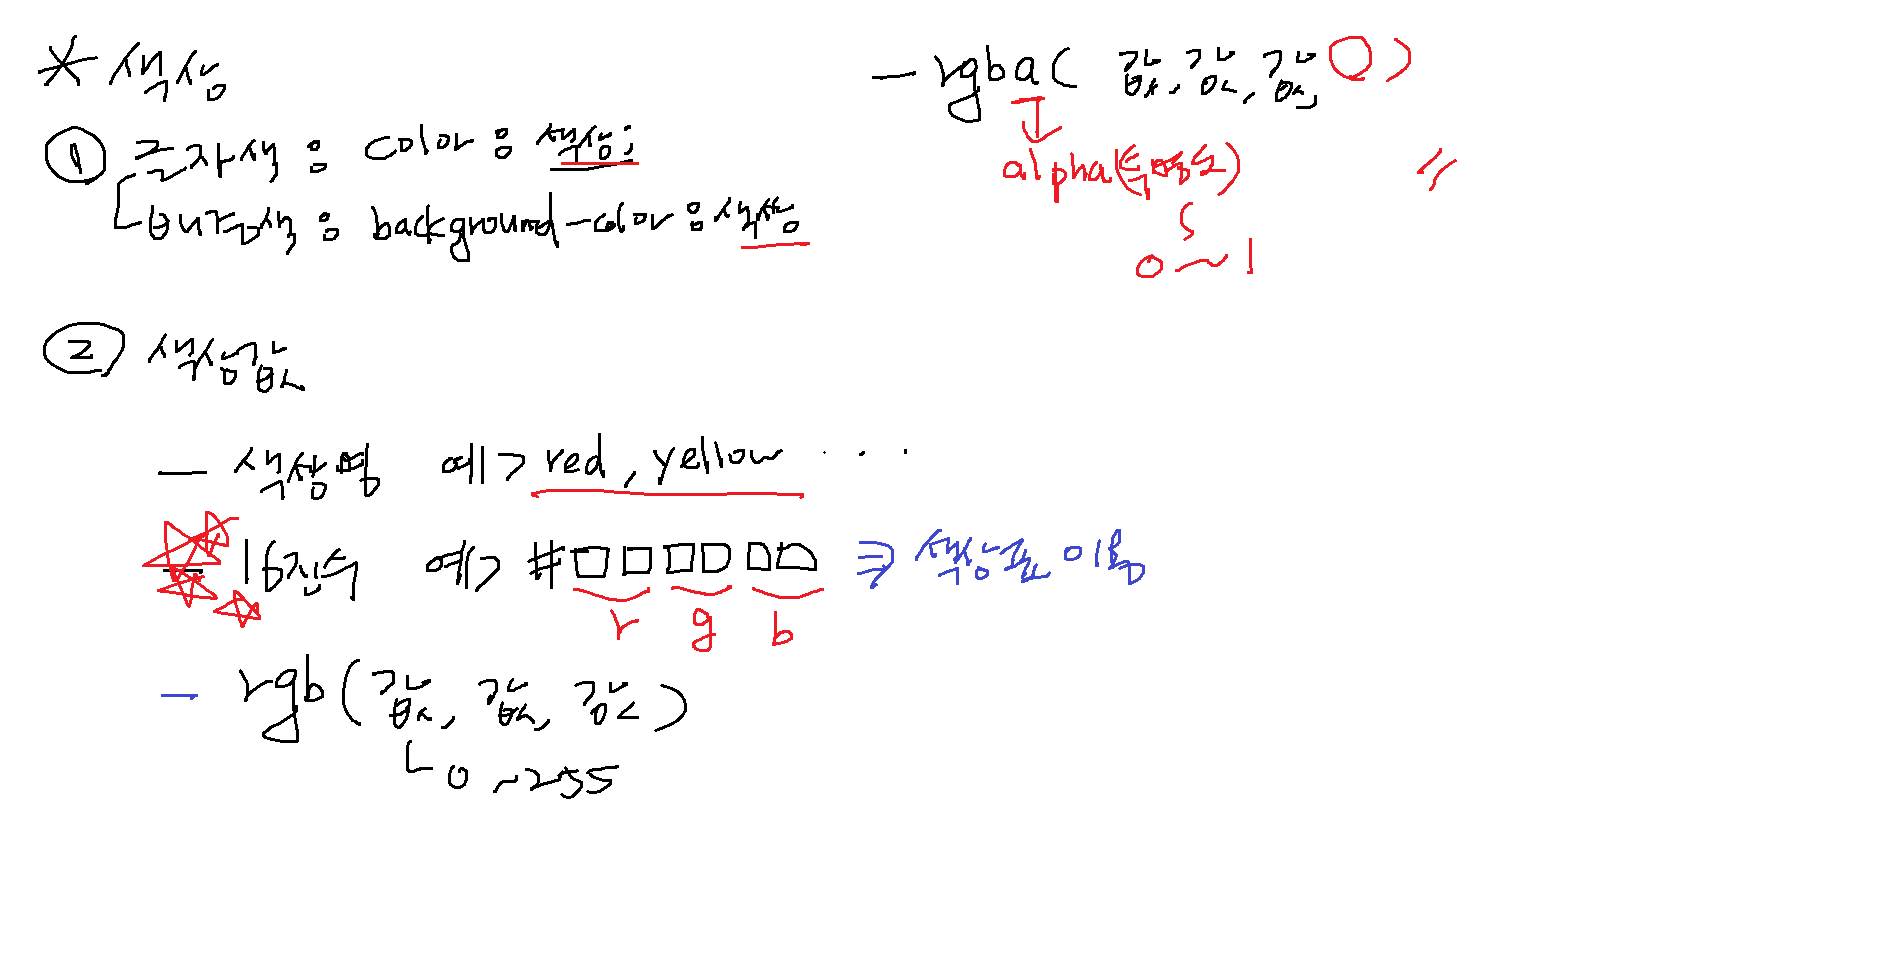 * 색상
① 글자색 : color : 색상;
배경색 : background-color : 색상
② 색상값
- 색상명 예> red, yellow ...
- 16진수 예> #□□□□□□ ⇒ 색상표 이용
r g b
- rgb(값, 값, 값)
0 ~ 255
- rgba( 값, 값, 값, ○)
alpha(투명도)
0 ~ 1